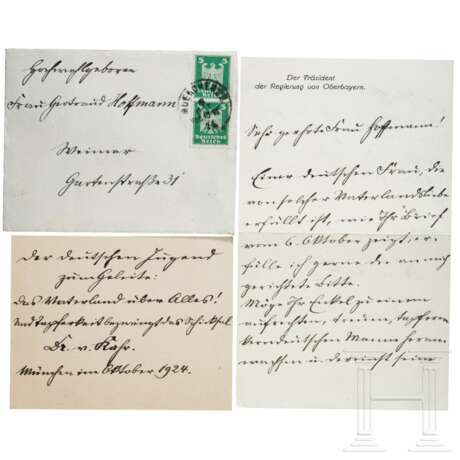 Hochwohlgeboren
Frau Gertraud Hoffmann
Weimar
Gartenstraße 31
5 5
Deutsches
Reich
MUENCHEN
Der deutschen Jugend
zum Geleite:
Das Vaterland über Alles!
Und Tapferkeit bezwingt das Schicksal
Dr. v. Kahr.
München im Oktober 1924.
Der Präsident
der Regierung von Oberbayern.
Sehr geehrte Frau Hoffmann!
Einer deutschen Frau, die
von solcher Vaterlandsliebe
erfüllt ist, wie Ihr Brief
vom 6. Oktober zeigt, er-
fülle ich gerne die an mich
gerichtete Bitte.
Möge Ihr Enkel zu einem
aufrechten, treuen, tapferen
kerndeutschen Manne heran
wachsen und dereinst seine